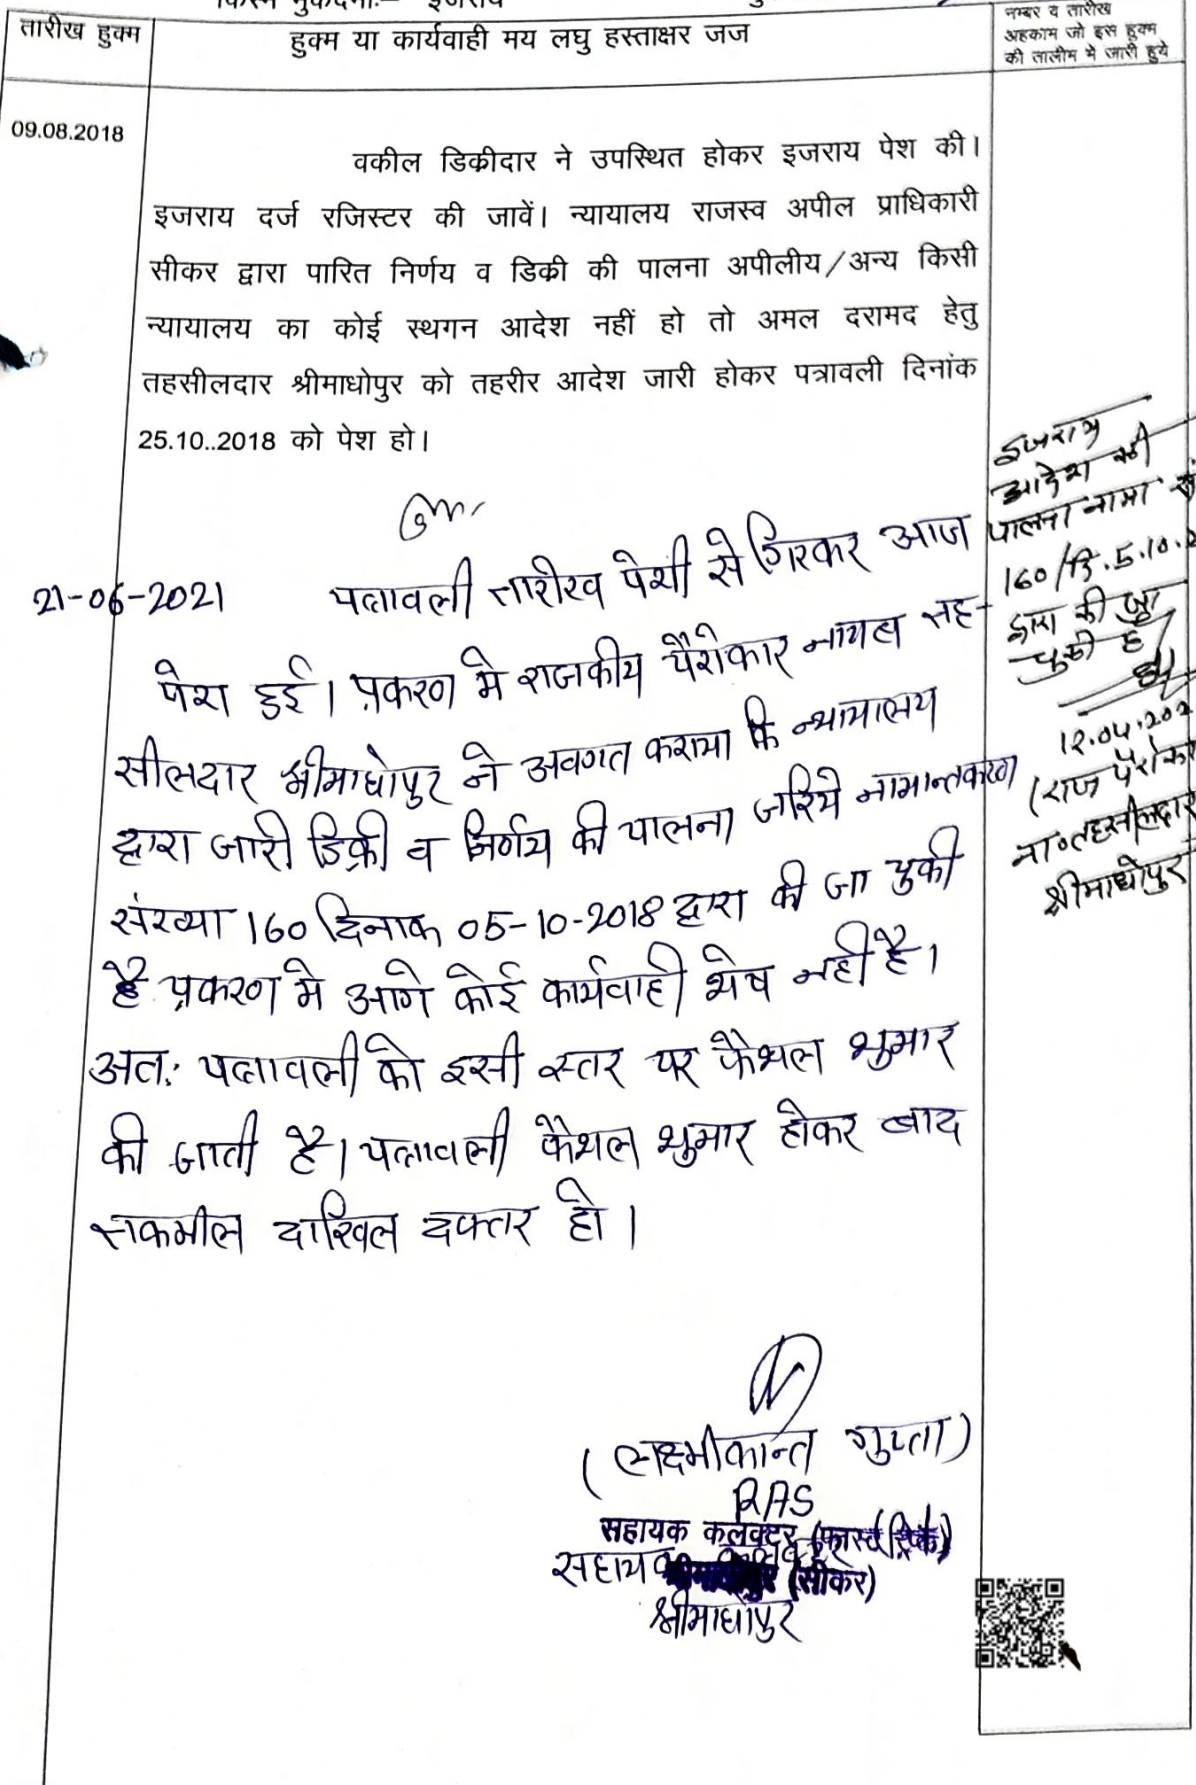 किस्म मुकदमाः– इजराय
तारीख हुक्म
हुक्म या कार्यवाही मय लघु हस्ताक्षर जज
नम्बर व तारीख
अहकाम जो इस हुक्म
की तालीम मे जारी हुये
09.08.2018
वकील डिक्रीदार ने उपस्थित होकर इजराय पेश की।
इजराय दर्ज रजिस्टर की जावें। न्यायालय राजस्व अपील प्राधिकारी
सीकर द्वारा पारित निर्णय व डिक्री की पालना अपीलीय/अन्य किसी
न्यायालय का कोई स्थगन आदेश नहीं हो तो अमल दरामद हेतु
तहसीलदार श्रीमाधोपुर को तहरीर आदेश जारी होकर पत्रावली दिनांक
25.10..2018 को पेश हो।
21-06-2021 पत्रावली तारीख पेशी से गिरकर आज
पेश हुई। प्रकरण मे राजकीय पैरोकार नायब तह-
सीलदार श्रीमाधोपुर ने अवगत कराया कि न्यायालय
द्वारा जारी डिक्री व निर्णय की पालना जरिये नामान्तकरण
संख्या 160 दिनाक 05-10-2018 द्वारा की जा चुकी
है प्रकरण मे आगे कोई कार्यवाही शेष नही है।
अतः पत्रावली को इसी स्तर पर फैशल शुमार
की जाती है। पत्रावली फैशल शुमार होकर बाद
तकमील दाखिल दफ्तर हो।
इजराय
आदेश की
पालना नामा
160/दि.5.10.
द्वारा की जा
चुकी है
12.04.202
(राज पैरोका
ना०तहसीलदार
श्रीमाधोपुर
(लक्ष्मीकान्त गुप्ता)
RAS
सहायक कलक्टर (फास्ट ट्रेक)
(सीकर)
श्रीमाधोपुर